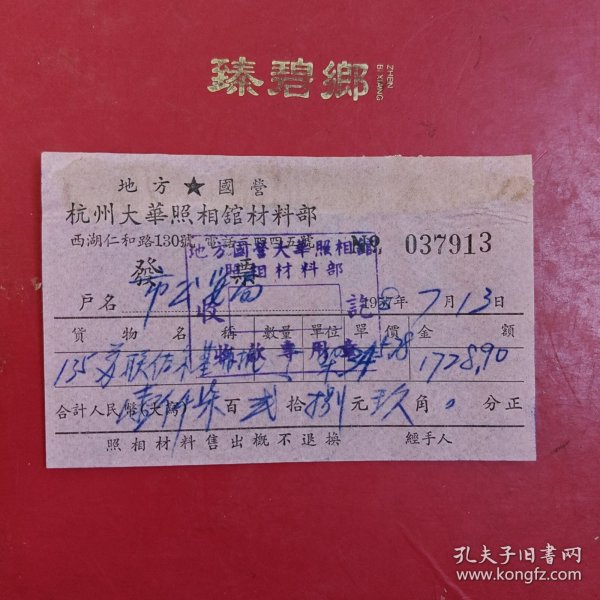 臻碧鄉
ZHEN
BI XIANG
地方★國營
杭州大華照相舘材料部
西湖仁和路130號 電話二四五號
№ 037913
地方國營大華照相舘
照相材料部
收 訖
發票
戶名 市
1958年7月13日
貨物名稱 數量 單位 單價 金額
135 1728.90
合計人民幣(大寫)壹仟柒百貳拾捌元玖角0分正
照相材料售出概不退換 經手人
孔夫子旧书网
www.kongfz.com